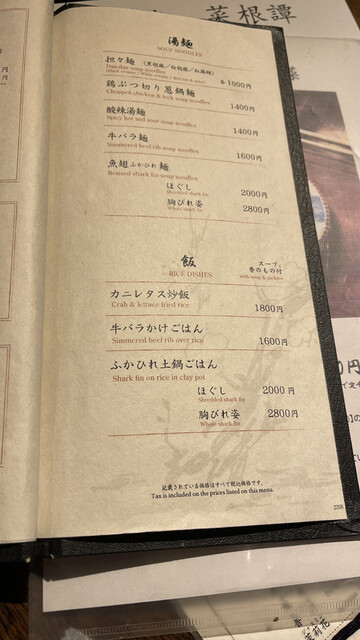 菜根譚
湯麺
SOUP NOODLES
担々麺 (黒胡麻／白胡麻／紅麻辣) 各1000円
Dan-dan soup noodles
鶏ぶつ切り葱鍋麺 1400円
Chopped chicken & leek soup noodles
酸辣湯麺 1400円
Spicy hot and sour soup noodles
牛バラ麺 1600円
Simmered beef rib soup noodles
魚翅ふかひれ麺
Braised shark fin soup noodles
ほぐし 2000円
Shredded shark fin
胸びれ姿 2800円
Whole shark fin
飯
RICE DISHES
スープ、
香のもの付
with soup & pickles
カニレタス炒飯 1800円
Crab & lettuce fried rice
牛バラかけごはん 1600円
Simmered beef rib over rice
ふかひれ土鍋ごはん
Shark fin on rice in clay pot
ほぐし 2000円
Shredded shark fin
胸びれ姿 2800円
Whole shark fin
記載されている価格はすべて税込価格です。
Tax is included on the prices listed on this menu.